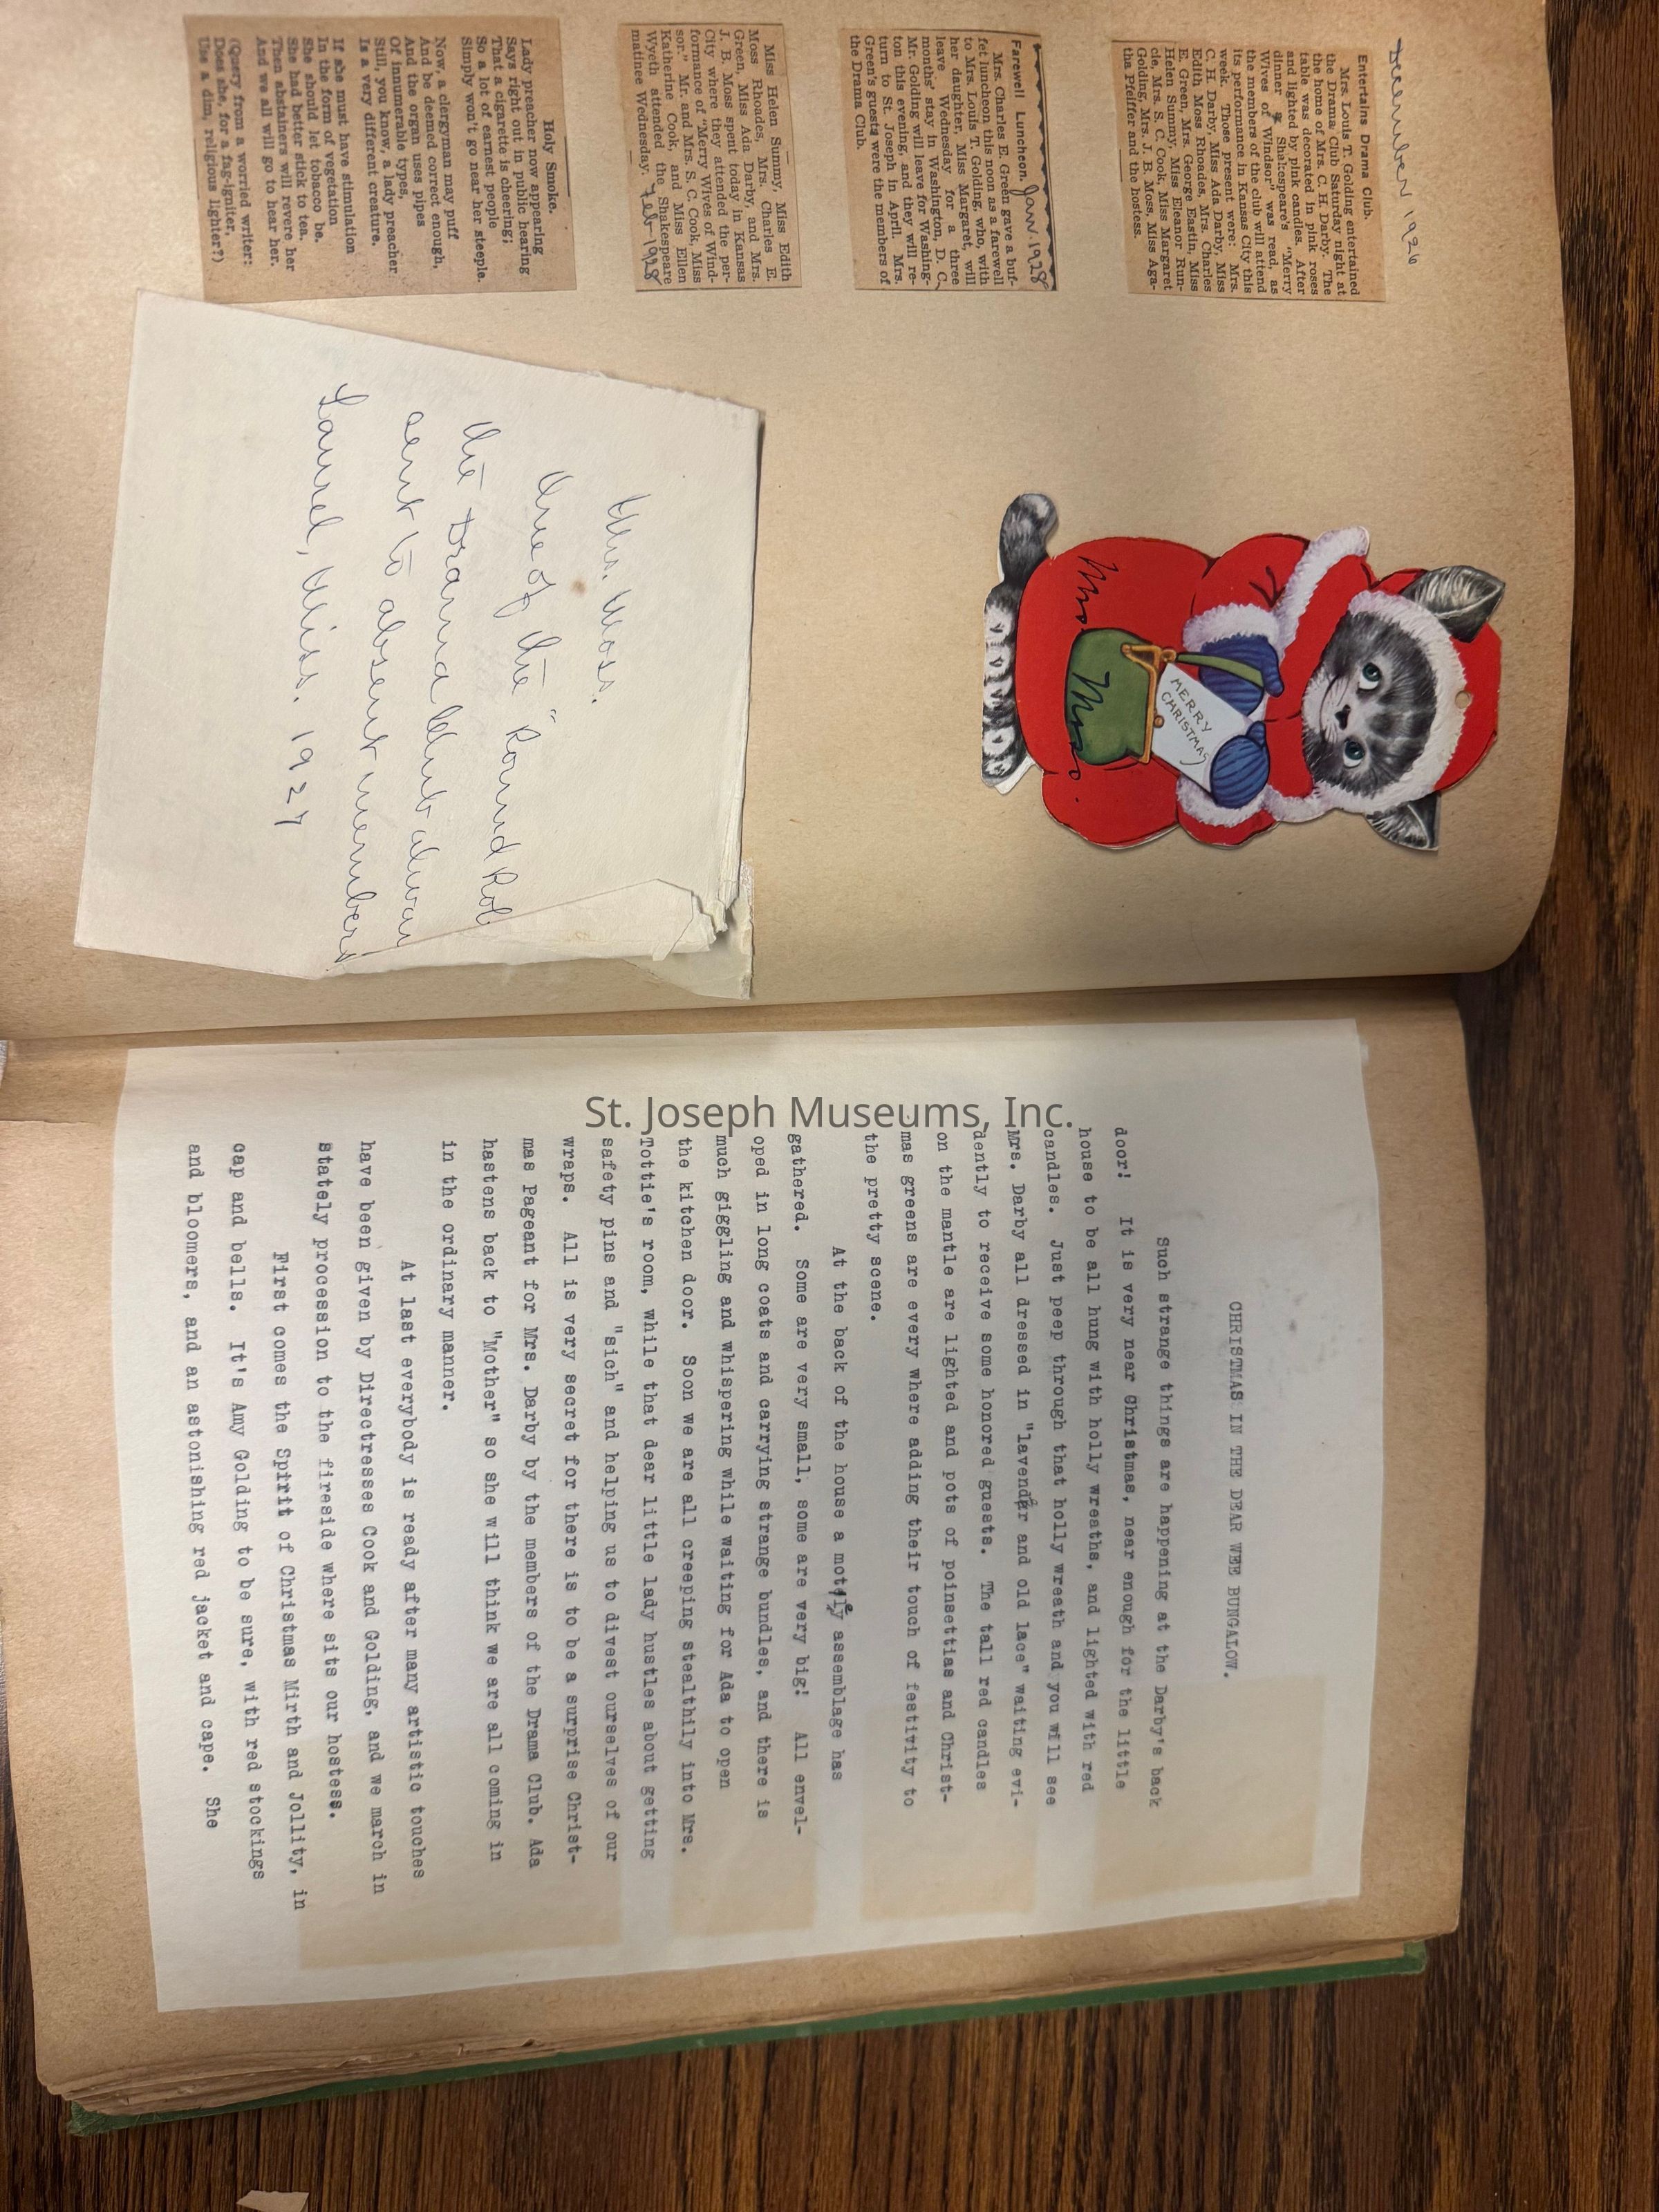 December 1926
Entertains Drama Club.
Mrs. Louis T. Golding entertained
the Drama Club Saturday night at
the home of Mrs. C. H. Darby. The
table was decorated in pink roses
and lighted by pink candles. After
dinner Shakespeare's "Merry
Wives of Windsor" was read, as
the members of the club will attend
its performance in Kansas City this
week. Those present were: Mrs.
C. H. Darby, Miss Ada Darby, Miss
Edith Moss Rhoades, Mrs. Charles
E. Green, Mrs. George Eastin, Miss
Helen Summy, Miss Eleanor Run-
cie, Mrs. S. C. Cook, Miss Margaret
Golding, Mrs. J. B. Moss, Miss Aga-
tha Pfeiffer and the hostess.
Jan. 1928
Farewell Luncheon.
Mrs. Charles E. Green gave a buf-
fet luncheon this noon as a farewell
to Mrs. Louis T. Golding, who, with
her daughter, Miss Margaret, will
leave Wednesday for a three
months' stay in Washington, D. C.
Mr. Golding will leave for Washing-
ton this evening, and they will re-
turn to St. Joseph in April. Mrs.
Green's guests were the members of
the Drama Club.
Miss Helen Summy, Miss Edith
Moss Rhoades, Mrs. Charles E.
Green, Miss Ada Darby, and Mrs.
J. B. Moss spent today in Kansas
City where they attended the per-
formance of "Merry Wives of Wind-
sor." Mr. and Mrs. S. C. Cook, Miss
Katherine Cook, and Miss Ellen
Wyeth attended the Shakespeare
matinee Wednesday. Feb-1928
Holy Smoke.
Lady preacher now appearing
Says right out in public hearing
That a cigarette is cheering;
So a lot of earnest people
Simply won't go near her steeple.
Now, a clergyman may puff
And be deemed correct enough,
And the organ uses pipes
Of innumerable types,
Still, you know, a lady preacher
Is a very different creature.
If she must have stimulation
In the form of vegetation
She should let tobacco be.
She had better stick to tea.
Then abstainers will revere her
And we all will go to hear her.
(Query from a worried writer:
Does she, for a fag-igniter,
Use a dim, religious lighter?)
MERRY
CHRISTMAS
Mrs. Moss.
One of the "Round Rob
the Drama Club alway
sent to absent members
Laurel, Miss. 1927
St. Joseph Museums, Inc.
CHRISTMAS IN THE DEAR WEE BUNGALOW.
Such strange things are happening at the Darby's back
door! It is very near Christmas, near enough for the little
house to be all hung with holly wreaths, and lighted with red
candles. Just peep through that holly wreath and you will see
Mrs. Darby all dressed in "lavender and old lace" waiting evi-
dently to receive some honored guests. The tall red candles
on the mantle are lighted and pots of poinsettias and Christ-
mas greens are every where adding their touch of festivity to
the pretty scene.
At the back of the house a motley assemblage has
gathered. Some are very small, some are very big! All envel-
oped in long coats and carrying strange bundles, and there is
much giggling and whispering while waiting for Ada to open
the kitchen door. Soon we are all creeping stealthily into Mrs.
Tottie's room, while that dear little lady hustles about getting
safety pins and "sich" and helping us to divest ourselves of our
wraps. All is very secret for there is to be a surprise Christ-
mas Pageant for Mrs. Darby by the members of the Drama Club. Ada
hastens back to "Mother" so she will think we are all coming in
in the ordinary manner.
At last everybody is ready after many artistic touches
have been given by Directresses Cook and Golding, and we march in
stately procession to the fireside where sits our hostess.
First comes the Spirit of Christmas Mirth and Jollity, in
cap and bells. It's Amy Golding to be sure, with red stockings
and bloomers, and an astonishing red jacket and cape. She